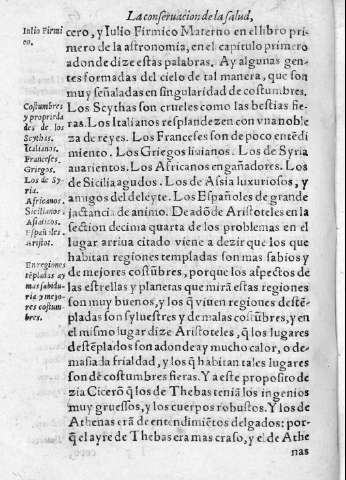 La conseruacion de la salud,
Iulio Firmi
co.
cero, y Iulio Firmico Materno en el libro pri-
mero de la astronomia, en el capitulo primero
adonde dize estas palabras. Ay algunas gen-
tes formadas del cielo de tal manera, que son
muy señaladas en singularidad de costumbres.
Costumbres
y propriєda
des de los
Scythas.
Italianos.
Franceses.
Griegos.
Los de Sy
ria.
Africanos.
Sicilianos.
Asiaticos.
Españoles.
Aristot.
Los Scythas son crueles como las bestias fie-
ras. Los Italianos resplandezen con vna noble
za de reyes. Los Franceses son de poco entēdi
miento. Los Griegos liuianos. Los de Syria
auarientos. Los Africanos engañadores. Los
de Sicilia agudos. Los de Assia luxuriosos, y
amigos del deleyte. Los Españoles de grande
jactancia de animo. De adōde Aristoteles en la
section decima quarta de los problemas en el
lugar arriua citado viene a dezir que los que
En regiones
tēpladas ay
mas sabidu
ria y mejo
res costum
bres.
habitan regiones templadas son mas sabios y
de mejores costūbres, porque los aspectos de
las estrellas y planetas que mirā estas regiones
son muy buenos, y los q̄ viuen regiones destē-
pladas son syluestres y de malas costūbres, y en
el mismo lugar dize Aristoteles, q̄ los lugares
destēplados son adonde ay mucho calor, o de-
masiada frialdad, y los q̄ habitan tales lugares
son dē costumbres fieras. Y a este proposito de
zia Cicerō q̄ los de Thebas teniā los ingenios
muy gruessos, y los cuerpos robustos. Y los de
Athenas erā de entendimiētos delgados: por-
q̄ el ayre de Thebas era mas craso, y el de Athe
nas